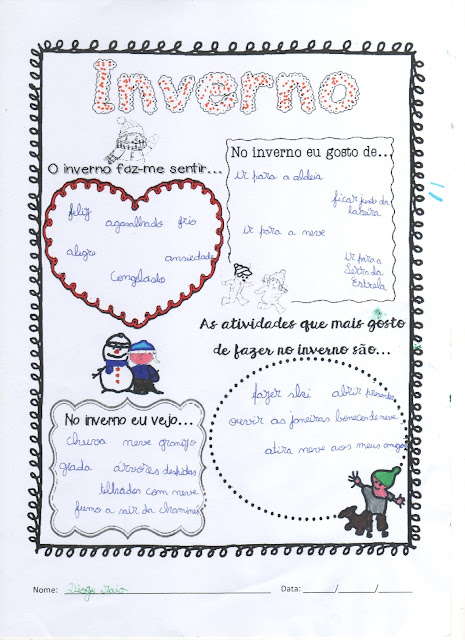 Inverno
O inverno faz-me sentir...
feliz
agasalhado frio
alegre ansiedade
Congelado
No inverno eu gosto de...
ir para a aldeia
ficar junto da
lareira
ir para a neve
ir para a
Serra da
Estrela
As atividades que mais gosto
de fazer no inverno são...
fazer ski abrir
ouvir as janeiras bonecos de neve
atira neve aos meus amigos
No inverno eu vejo...
chuva neve granizo
geada árvores despidas
telhados com neve
fumo a sair da chaminé
Nome: Diogo Data: ____/____/____